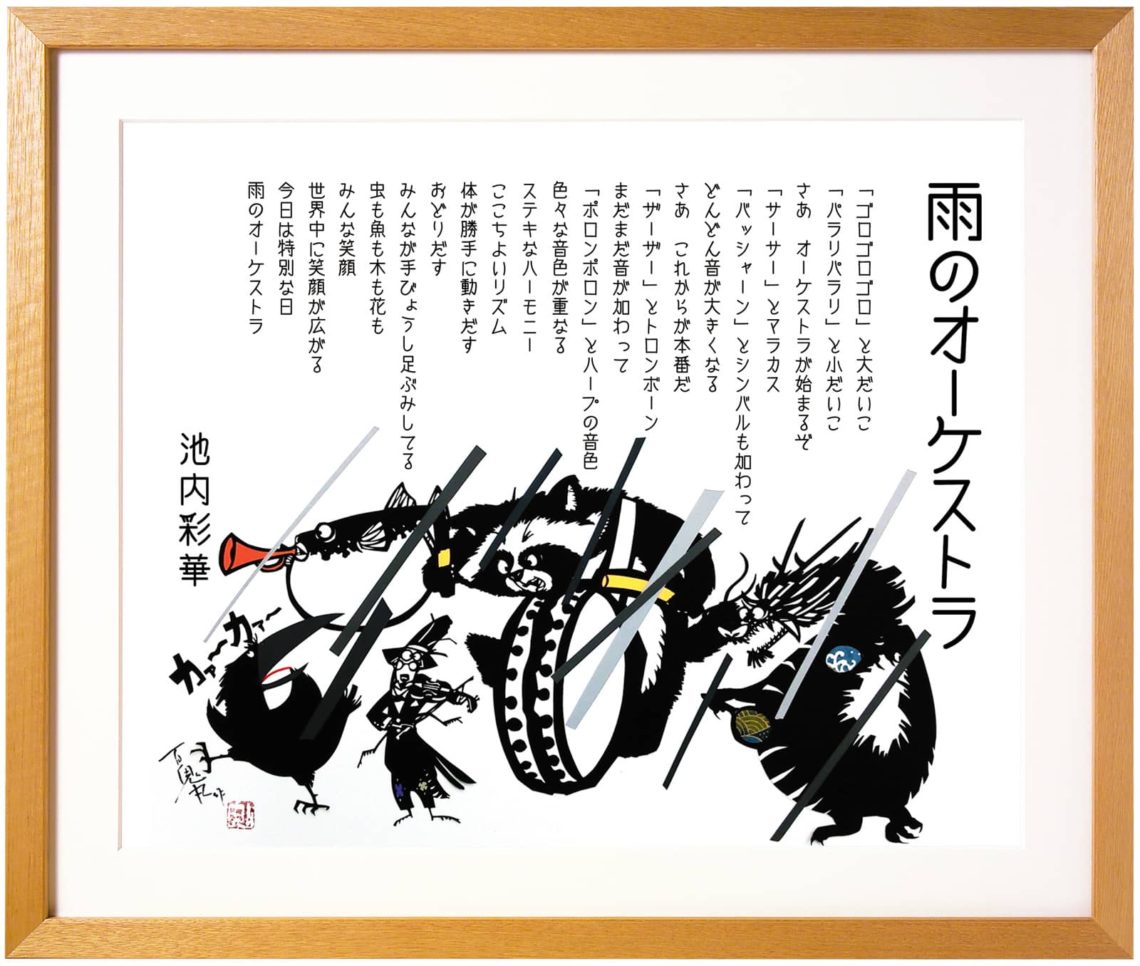 雨のオーケストラ
「ゴロゴロゴロ」と大だいこ
「パラリパラリ」と小だいこ
さあ　オーケストラが始まるぞ
「サーサー」とマラカス
「バッシャーン」とシンバルも加わって
どんどん音が大きくなる
さあ　これからが本番だ
「ザーザー」とトロンボーン
まだまだ音が加わって
「ポロンポロン」とハープの音色
色々な音色が重なる
ステキなハーモニー
ここちよいリズム
体が勝手に動きだす
おどりだす
みんなが手びょうし足ぶみしてる
虫も魚も木も花も
みんな笑顔
世界中に笑顔が広がる
今日は特別な日
雨のオーケストラ
池内彩華
カァ〜カァ〜